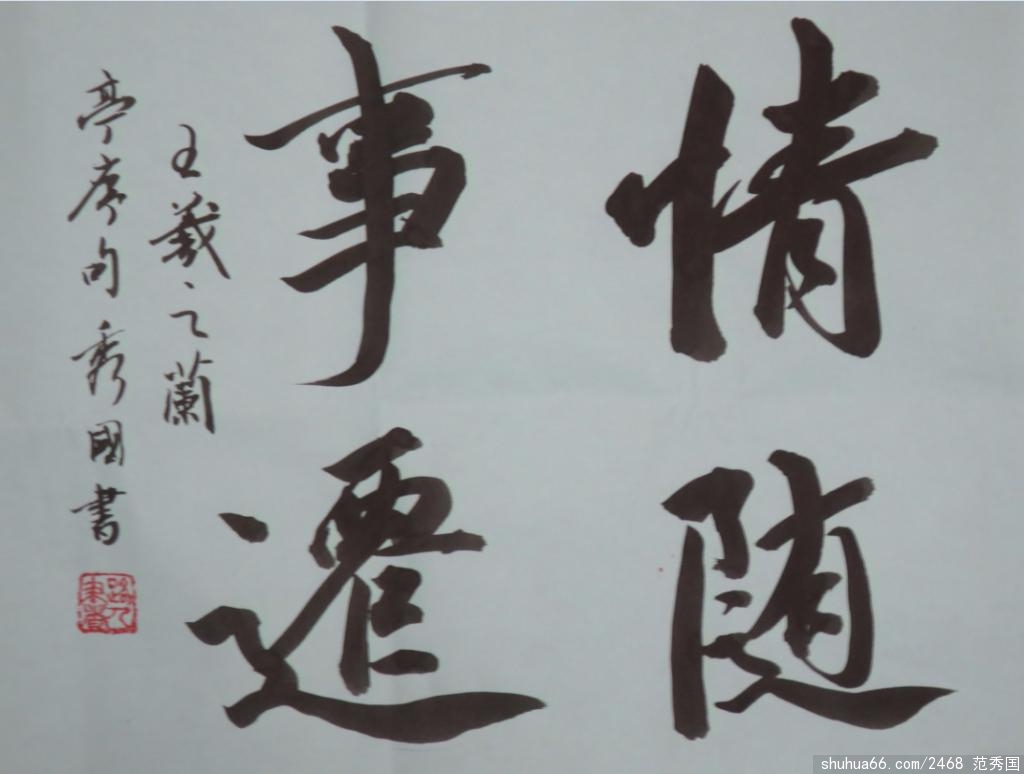 情随
事遷
王羲之蘭
亭序句秀國書
shuhua66.com/2468 范秀国